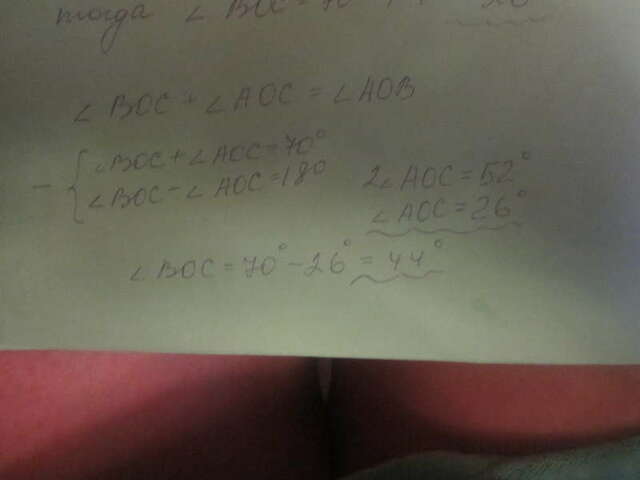 тогда ∠BOC = 70°
∠BOC + ∠AOC = ∠AOB
- { ∠BOC + ∠AOC = 70°
∠BOC - ∠AOC = 18°
2∠AOC = 52°
∠AOC = 26°
∠BOC = 70° - 26° = 44°